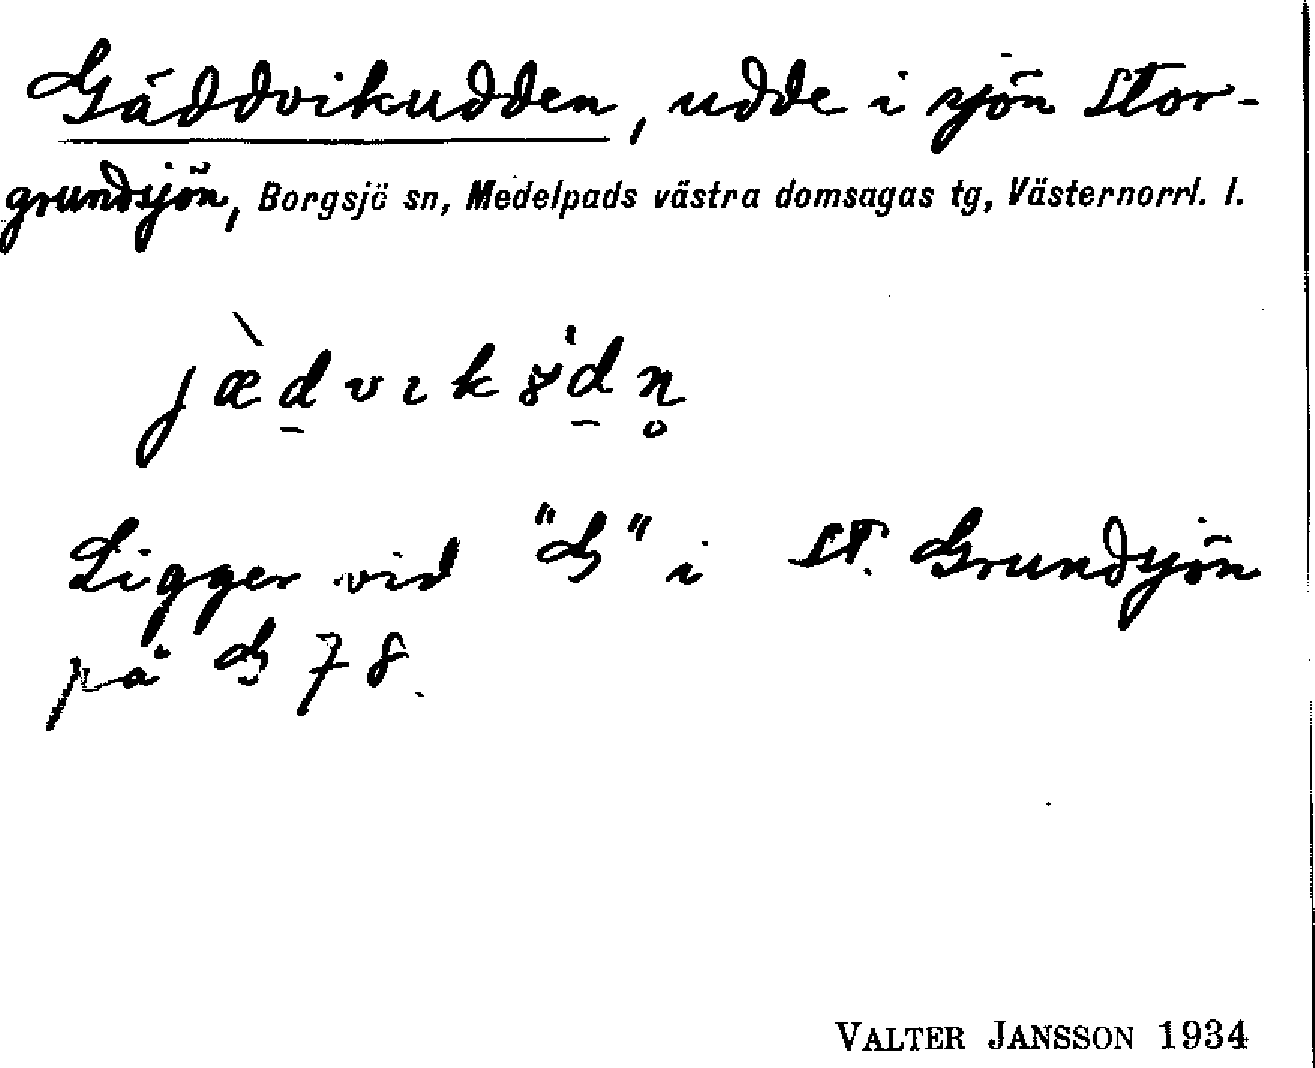 Gäddvikudden, udde i sjön Stor-
grundsjön, Borgsjö sn, Medelpads västra domsagas tg, Västernorrl. l.
Ligger vid "G" i St. Grundsjön
på G 78.
VALTER JANSSON 1934